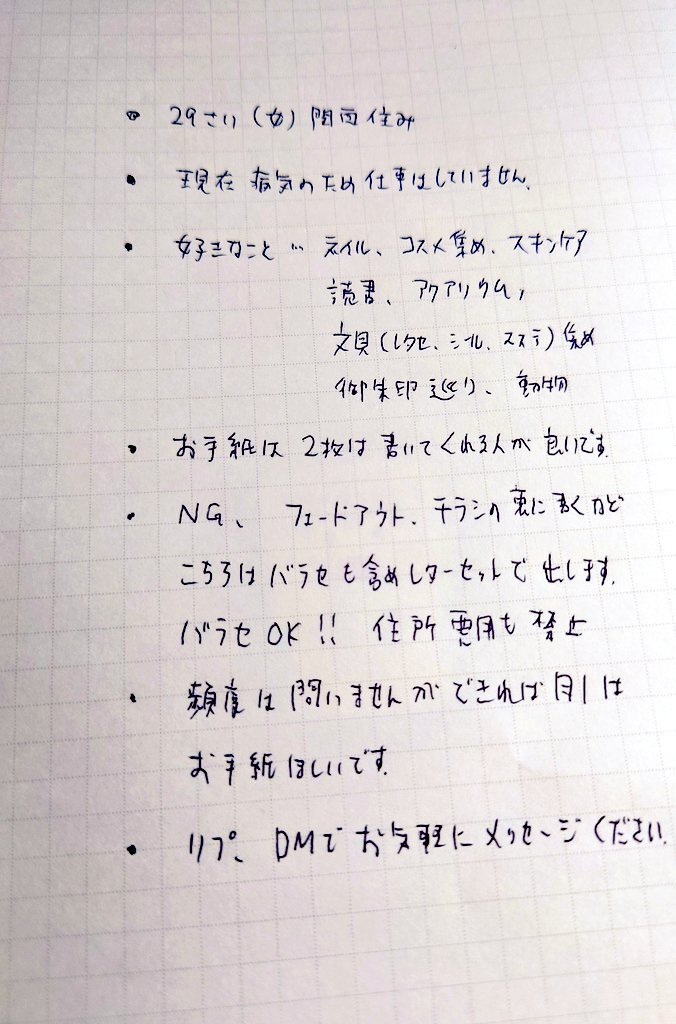 • 29さい(女)関西住み
• 現在病気のため仕事はしていません。
• 好きなこと… ネイル、コスメ集め、スキンケア
読書、アクアリウム、
文具(レタセ、シール、ステ)集め
御朱印巡り、動物
• お手紙は2枚は書いてくれる人が良いです。
• NG、フェードアウト、チラシの裏に書くなど
こちらはバラセも含めレターセットで出します。
バラセOK!! 住所悪用も禁止
• 頻度は問いませんができれば月1は
お手紙ほしいです。
• リプ、DMでお気軽にメッセージください。